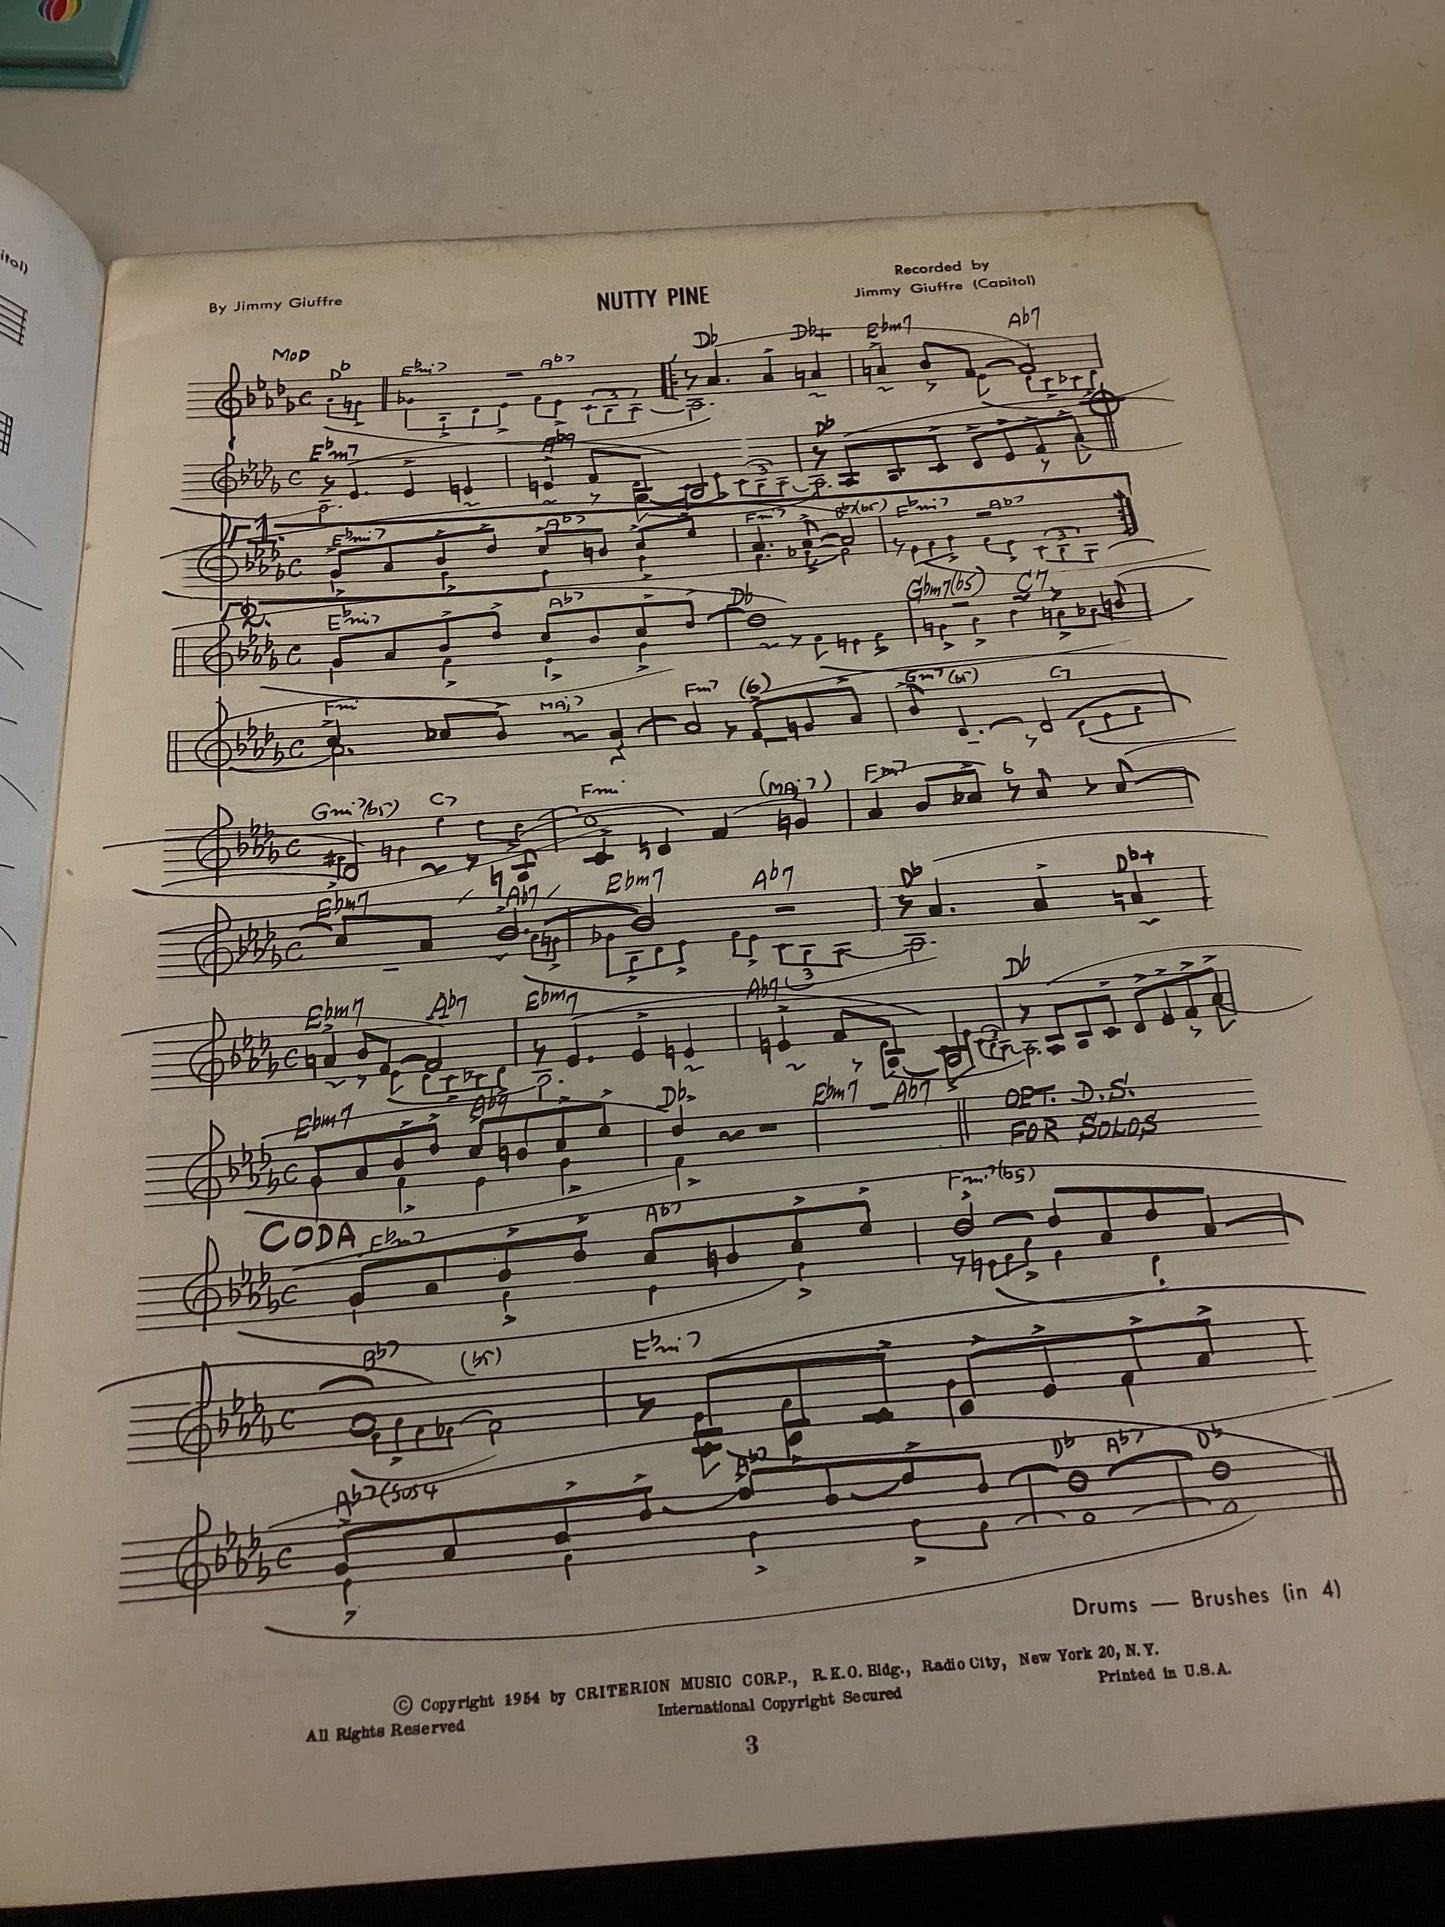 itol)
By Jimmy Giuffre
NUTTY PINE
Recorded by
Jimmy Giuffre (Capitol)
MOD
Db Ebmi7 Ab7 Db Db+ Ebm7 Ab7
Ebm7 Ab9 Db
1. Ebmi7 Ab7 Fmi7 Bb7(b5) Ebmi7 Ab7
3
2. Ebmi7 Ab7 Db Gbm7(b5) C7
Fmi MAj7 Fmi7 (6) Gmi7(b5) C7
Gmi7(b5) C7 Fmi (MAj7) Fmi7 6
Ebm7 Ab7 Ebm7 Ab7 Db Db+
3
Ebm7 Ab7 Ebm7 Ab7 Db
3
Ebm7 Ab9 Db Ebm7 Ab7
OPT. D.S.
FOR SOLOS
CODA
Ebmi7 Ab7 Fmi7(b5)
Bb7 (b5) Ebmi7
Ab7(SUS4 Ab7 Db Ab7 Db
Drums — Brushes (in 4)
© Copyright 1954 by CRITERION MUSIC CORP., R.K.O. Bldg., Radio City, New York 20, N.Y.
All Rights Reserved International Copyright Secured Printed in U.S.A.
3